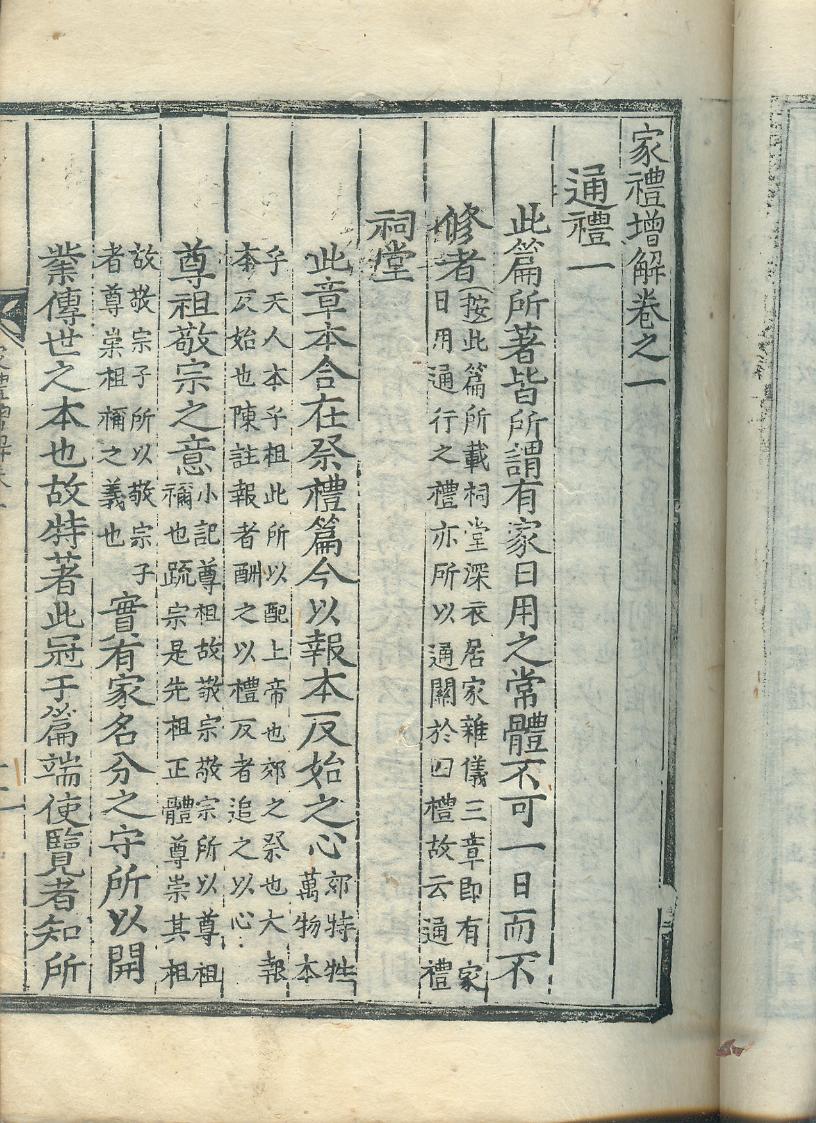 家禮增解卷之一
通禮一
此篇所著皆所謂有家日用之常體不可一日而不
修者按此篇所載祠堂深衣居家雜儀三章即有家
日用通行之禮亦所以通關於四禮故云通禮
祠堂
此章本合在祭禮篇今以報本反始之心郊特牲
萬物本
乎天人本乎祖此所以配上帝也郊之祭也大報
本反始也陳註報者酬之以禮反者追之以心
尊祖敬宗之意小記尊祖故敬宗敬宗所以尊祖
禰也疏宗是先祖正體尊崇其祖
故敬宗子所以敬宗子
者尊崇祖禰之義也實有家名分之守所以開
業傳世之本也故特著此冠于篇端使覽者知所